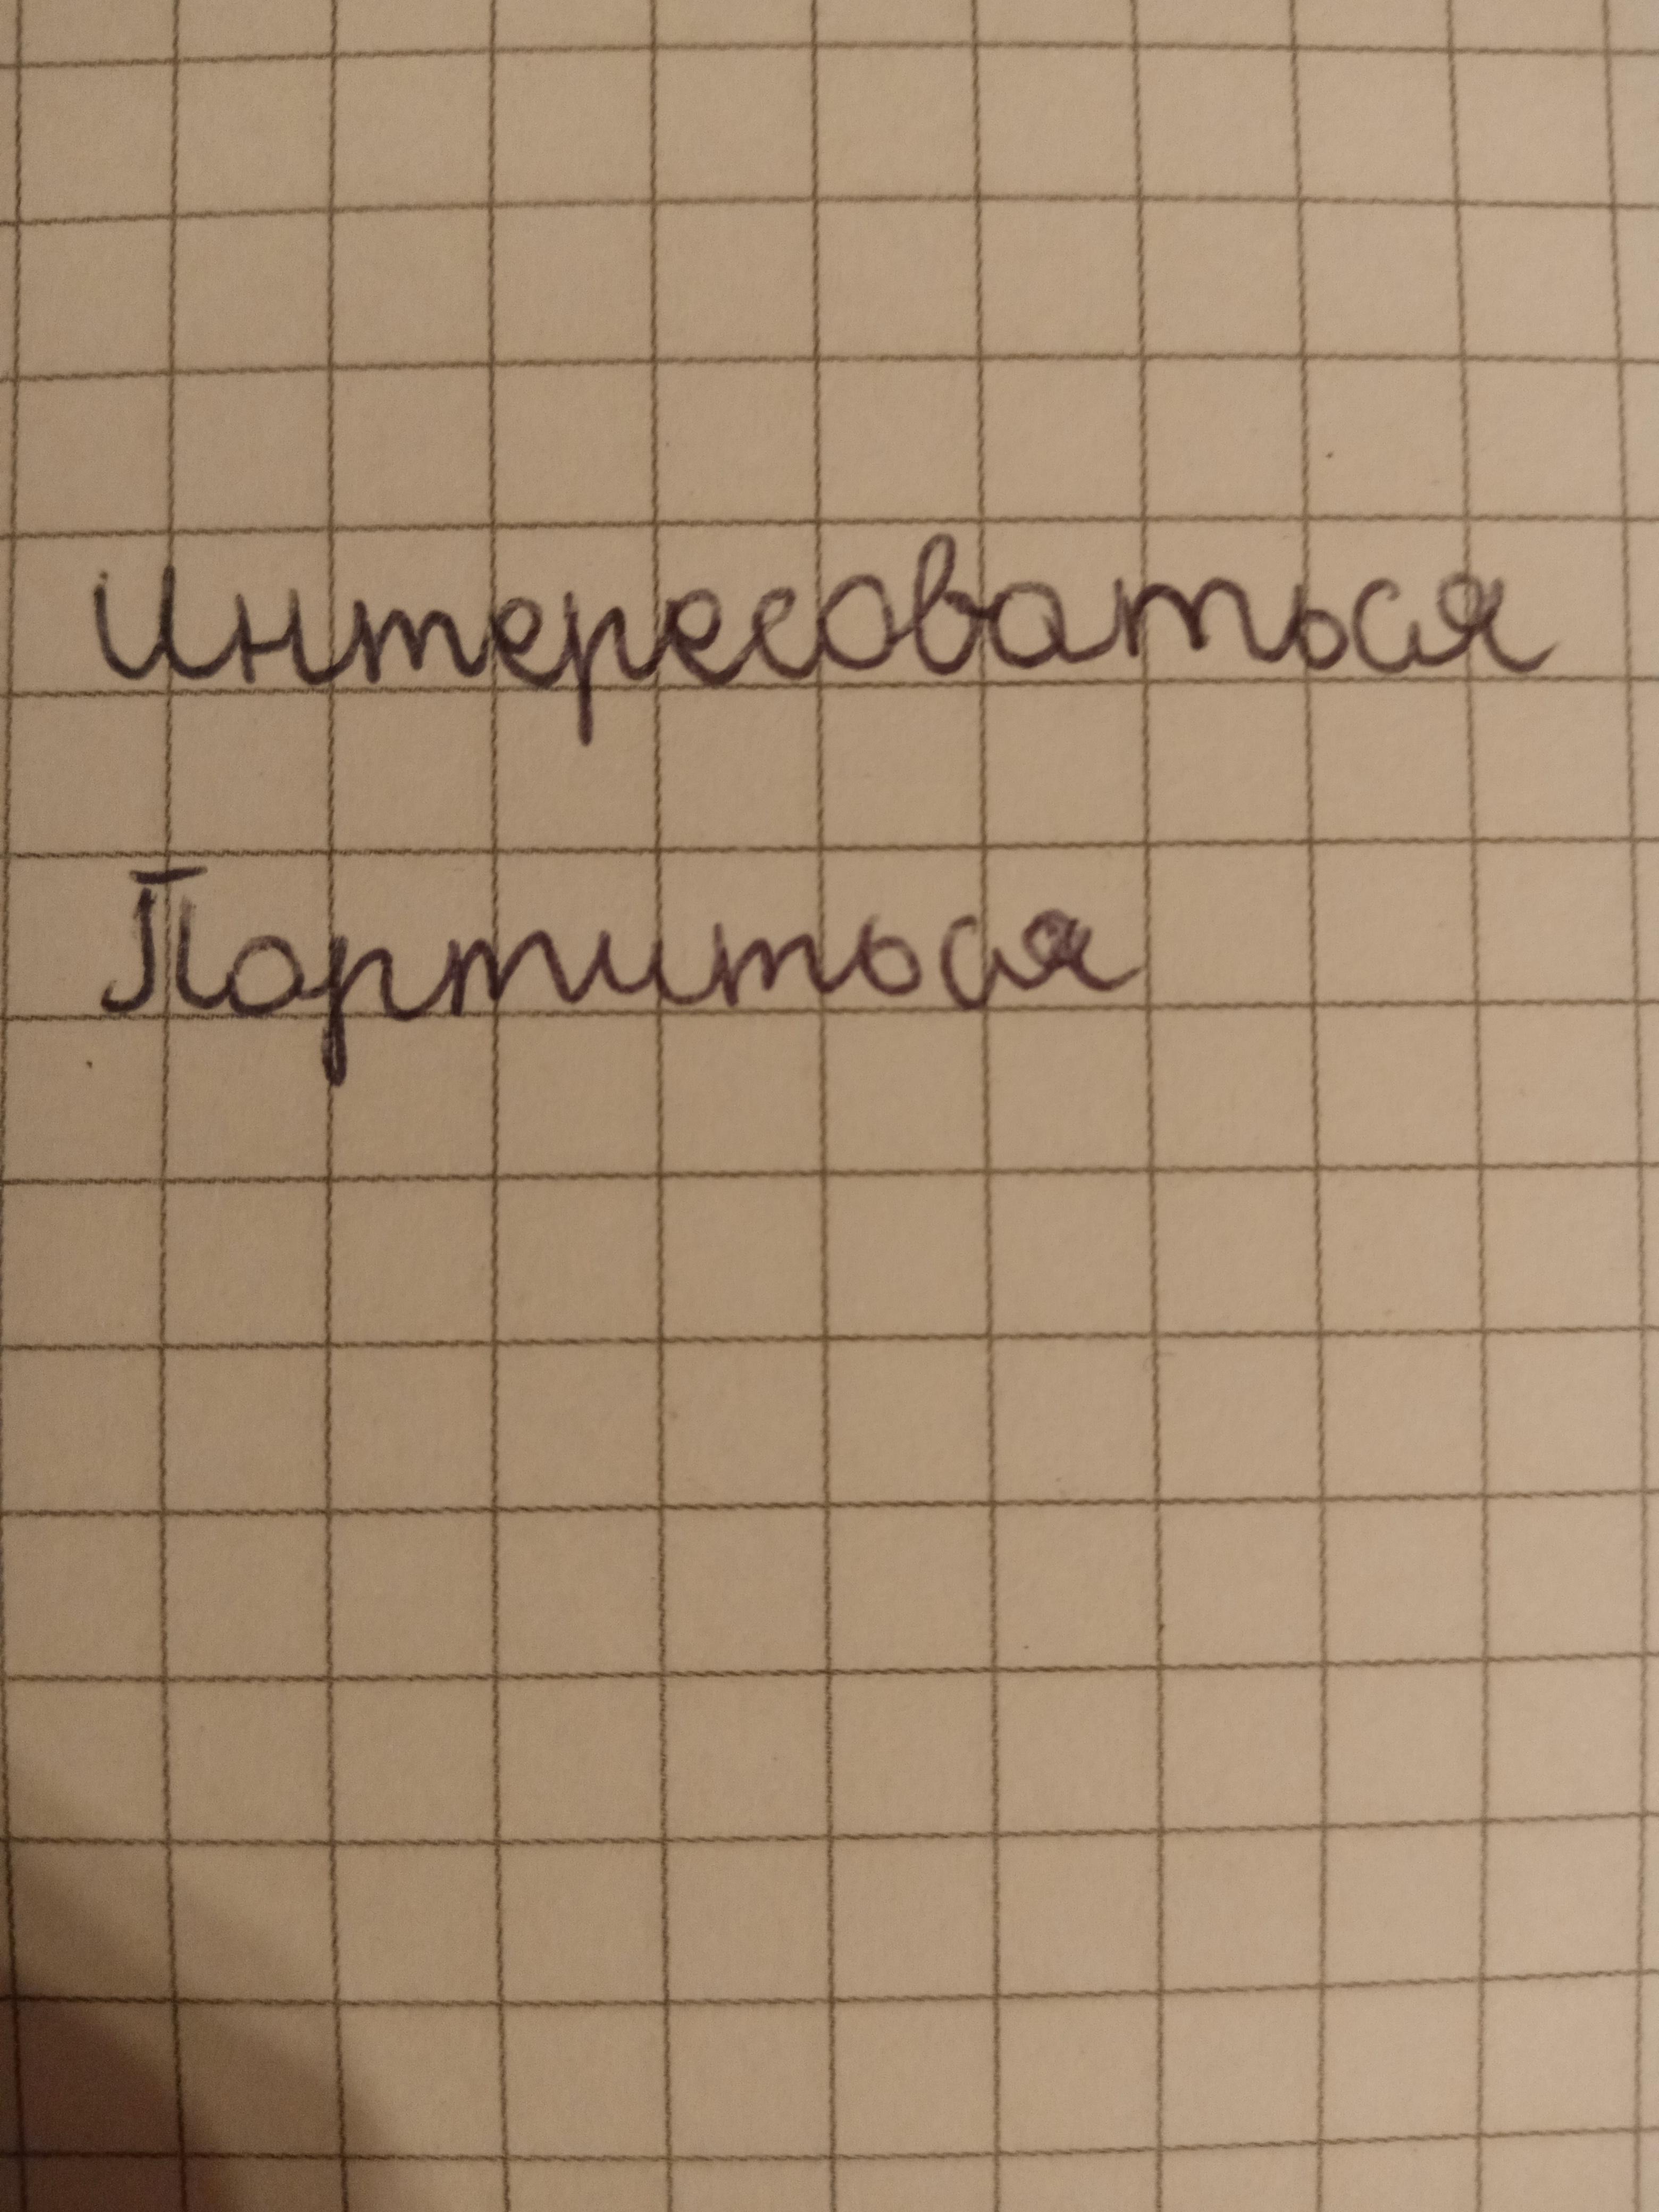 Интересоваться
Портиться